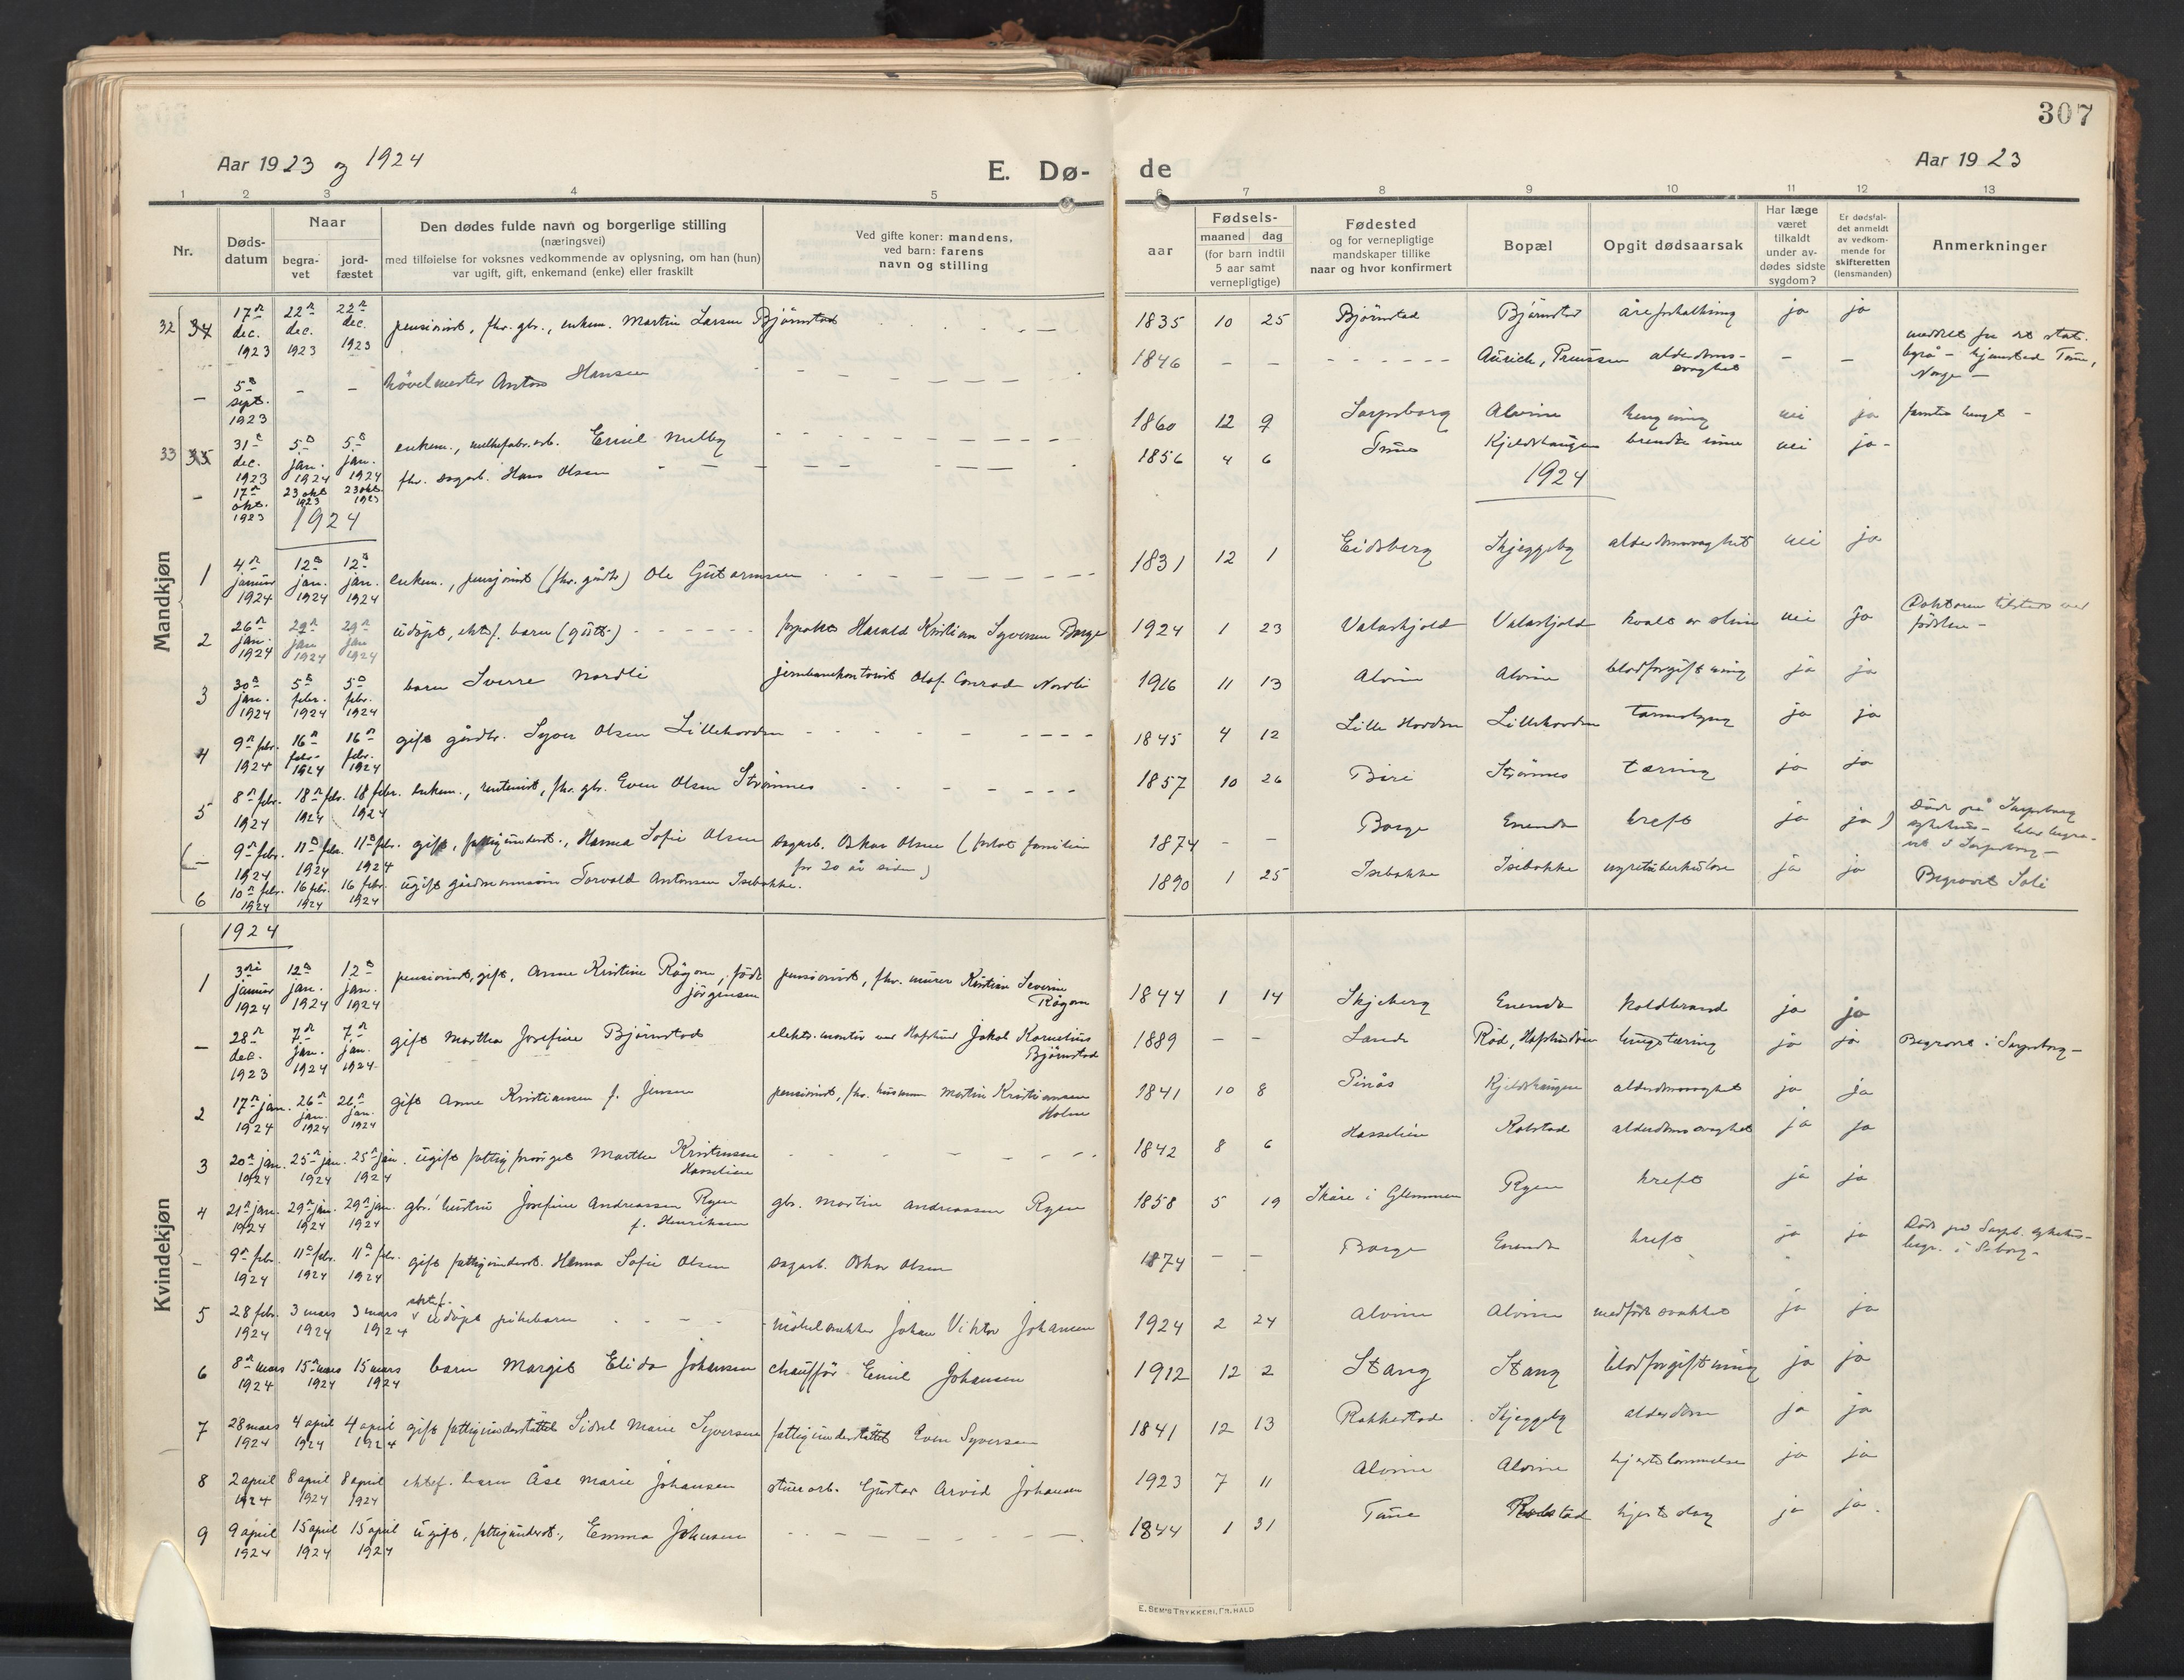 307
Aar 1923 og 1924
E. Dø-
de
Aar 1923
1 2 3 4 5 6 7 8 9 10 11 12 13
Nr.
Døds-
datum
Naar
begra-
vet
jord-
fæstet
Den dødes fulde navn og borgerlige stilling
(næringsvei)
med tilføielse for voksnes vedkommende av oplysning, om han (hun)
var ugift, gift, enkemand (enke) eller fraskilt
Ved gifte koner: mandens,
ved barn: farens
navn og stilling
Fødsels-
aar
maaned
dag
(for barn indtil
5 aar samt
vernepligtige)
Fødested
og for vernepligtige
mandskaper tillike
naar og hvor konfirmert
Bopæl
Opgit dødsaarsak
Har læge
været
tilkaldt
under av-
dødes sidste
sygdom?
Er dødsfal-
det anmeldt
av vedkom-
mende for
skifteretten
(lensmanden)
Anmerkninger
Mandkjøn
32 34 17 dec. 1923 22 dec. 1923 22 dec. 1923 pensionist, fhv. gbr., enkem. Martin Larsen Bjørnstad 1835 10 25 Bjørnstad Bjørnstad åreforkalkning ja ja
— 5 sept. 1923 — — høvelmester Anton Hansen 1846 — — Aurich, Preussen alderdoms-
svaghet — —
hjemsted Tune,
Norge —
33 35 31 dec. 1923 5 jan. 1924 5 jan. 1924 enkem., Emil Melby 1860 12 9 Sarpsborg Alvim hengning nei ja funder hengt —
— 17 okt. 1923 23 okt 1923 23 okt. 1923 fhv. sagarb. Hans Olsen 1856 4 6 Tune Kjeldshaugen brændte inne nei ja
1924
1924
1 4 januar 1924 12 jan. 1924 12 jan. 1924 enkem., pensjonist (fhv. gårdbr) Ole Gutormsen 1831 12 1 Eidsberg Skjeggeby alderdomssvaghet nei ja
2 26 jan. 1924 29 jan 1924 29 jan 1924 udøpt, ektef. barn (gutt) Harald Kristian Syversen Borge 1924 1 23 Valaskjold Valaskjold kvalt av slim nei ja Doktoren tilstede ved
fødslen —
3 30 jan. 1924 5 febr. 1924 5 febr. 1924 barn Sverre Nordli jernbanekontorist Olaf Conrad Nordli 1916 11 13 Alvim Alvim blodforgiftning ja ja
4 9 febr. 1924 16 febr. 1924 16 febr. 1924 gift gårdbr. Syver Olsen Lillehorden 1845 4 12 Lille Horden Lillehorden ja ja
5 8 febr. 1924 18 febr. 1924 18 febr. 1924 enkem., rentenist, fhv. gbr. Even Olsen Strømnes 1857 10 26 Biri Strømnes tæring ja ja
— 9 febr. 1924 11 febr. 1924 11 febr. 1924 gift, fattigunderst., Hanna Sofie Olsen sagarb. Oskar Olsen (forlot familien
for 20 år siden) 1874 — — Borge Enenda kreft ja ja Døde på Sarpsborg
sykehus — blev begra-
vet i Sarpsborg —
6 10 febr. 1924 16 febr. 1924 16 febr. 1924 ugift gårdmannssøn Torvald Antonsen Isebakke. 1890 1 25 Isebakke Isebakke nyretuberkulose ja ja Begravet Soli
Kvindekjøn
1924
1 3di januar 1924 12 jan. 1924 12 jan. 1924 pensionist, gift, Anne Kristine Rågom, født
Jørgensen pensionist, fhv. murer Kristian Severin
Rågom 1844 1 14 Skjeberg Enenda koldbrand ja ja
— 28 dec. 1923 7 jan. 1924 7 jan. 1924 gift Martha Josefine Bjørnstad elektr. montør ved Hafslund Jakob Kornelius
Bjørnstad 1889 — — Lande Rød, Hafslundsøen lungetæring ja ja Begravet i Sarpsborg —
2 17 jan. 1924 26 jan. 1924 26 jan. 1924 gift Anne Kristiansen f. Jensen pensionist, fhv. husmann Martin Kristiansen
Holm 1841 10 8 Pinås Kjeldshaugen alderdomssvaghet ja ja
3 20 jan. 1924 25 jan. 1924 25 jan. 1924 ugift fattig Marthe Kristensen
Hasselien 1842 8 6 Hasselien Kalstad alderdomssvaghet ja ja
4 21 jan. 1924 29 jan. 1924 29 jan. 1924 gbr.' hustru Josefine Andreassen Ryen
f. Henriksen gbr. Martin Andreassen Ryen 1858 5 19 Skåre i Glemmen Ryen kreft ja ja
— 9 febr. 1924 11 febr. 1924 11 febr. 1924 gift fattigunderst. Hanna Sofie Olsen sagarb. Oskar Olsen 1874 — — Borge Enenda kreft ja ja Død på Sarpb. sykehus —
begr. i S.borg —
5 28 febr. 1924 3 mars 1924 3 mars 1924 ektef. udøpt pikebarn møbelsnekker Johan Viktor Johansen 1924 2 24 Alvim Alvim medfødt svakhet ja ja
6 8 mars 1924 15 mars 1924 15 mars 1924 barn Margit Elida Johansen chauffør Emil Johansen 1912 12 2 Stang Stang blodforgiftning ja ja
7 28 mars 1924 4 april 1924 4 april 1924 gift fattigunderstøttet Sidsel Marie Syversen fattigunderstøttet Even Syversen 1841 12 13 Rakkestad Skjeggeby alderdom ja ja
8 2 april 1924 8 april 1924 8 april 1924 ektef. barn Åse Marie Johansen stuerarb. Gustav Arvid Johansen 1923 7 11 Alvim Alvim hjertelammelse ja ja
9 9 april 1924 15 april 1924 15 april 1924 ugift, fattigunderst., Emma Johnsen 1844 1 31 Tune hjerteslag ja ja
E. SEM'S TRYKKERI, FR.HALD